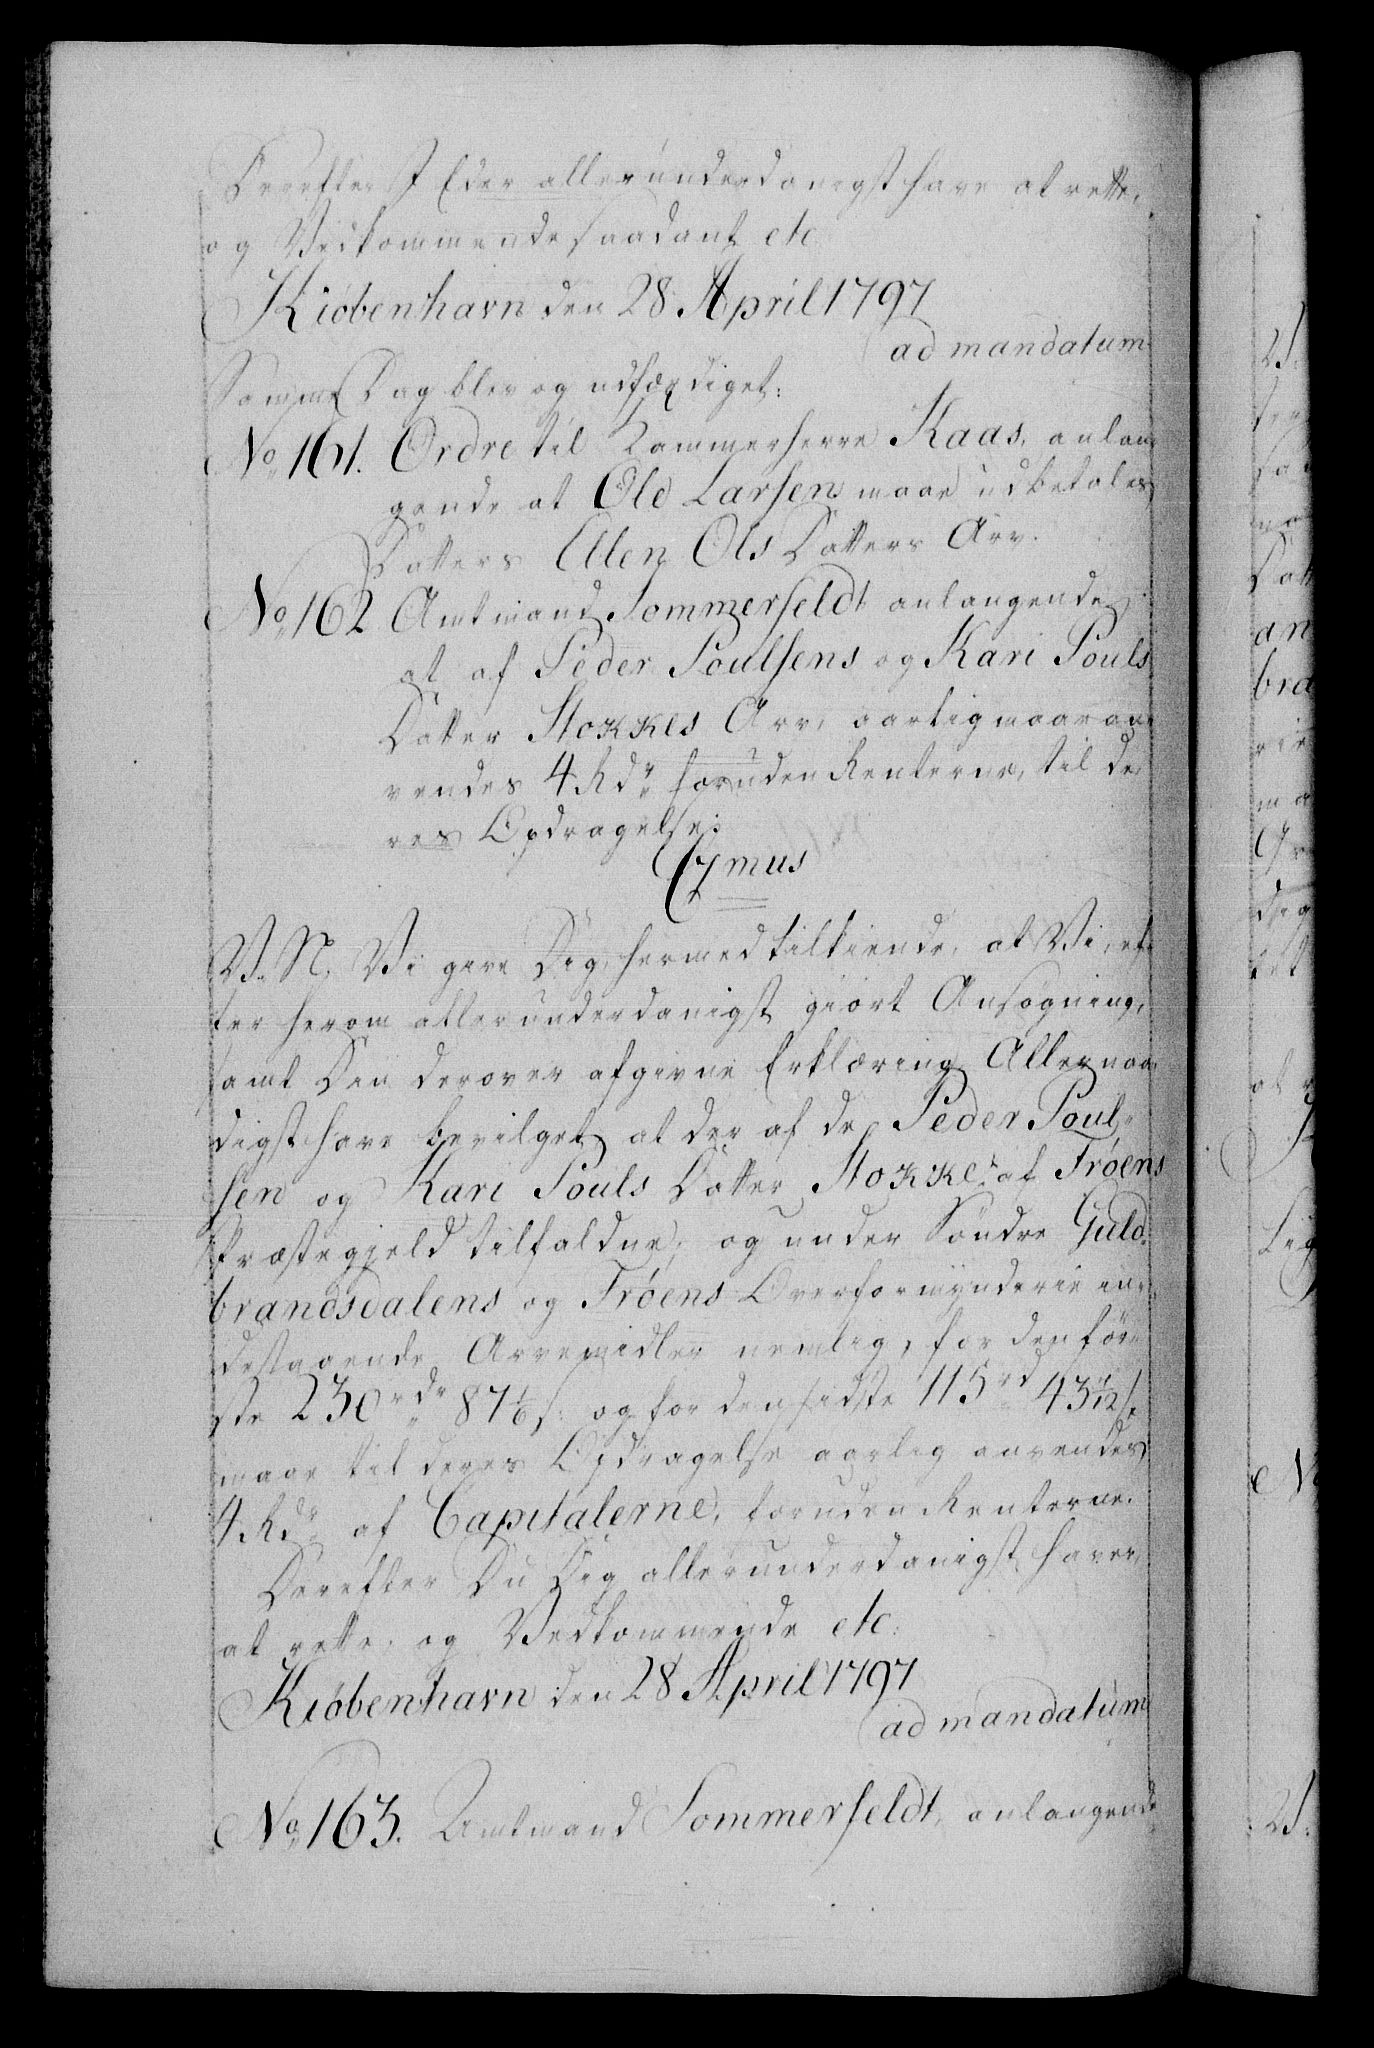 Derefter I Eder allerunderdanigst have at rette,
og Vedkommende saadant etc
Kiøbenhavn den 28 April 1797
ad mandatum
Samme Dag blev og udfærdiget:
No 161. Ordre til Kammerherre Kaas, anlan-
gende at Ole Larsen maae udbetales
Datters Ellen Ols Datters Arv.
No 162 Amtmand Sommerfeldt anlangende
at af Peder Poulsens og Kari Pouls
Datter Stokkes Arv, aarlig maae an-
vendes 4 Rdr foruden Renterne, til de-
res Opdragelse.
V. N. Vi give Dig hermed tilkiende, at Vi, ef-
ter herom allerunderdanigst giort Ansøgning,
samt Din derover afgivne Erklæring Allernaa-
digst have bevilget at der af de Peder Poul-
sen og Kari Pouls Datter Stokke af Frøens
Præstegjeld tilfaldne, og under Søndre Guld-
brandsdalens og Frøens Overformynderie in-
destaaende Arvemidler nemlig, for den før-
ste 230 rdr 87 1/6 s: og for den sidste 115 rd 43 7/12 s.
maae til deres Opdragelse aarlig anvendes
4 Rdr af Capitalerne, foruden Renterne.
Derefter Du Dig allerunderdanigst haver
at rette, og Vedkommende etc.
Kiøbenhavn den 28 April 1797
ad mandatum
No 163. Amtmand Sommerfeldt, anlangende